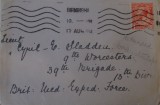 Lieut
Cyril E. Sladden
9th Worcesters
39th Brigade
13th Div.
Brit. Med. Exped. Force